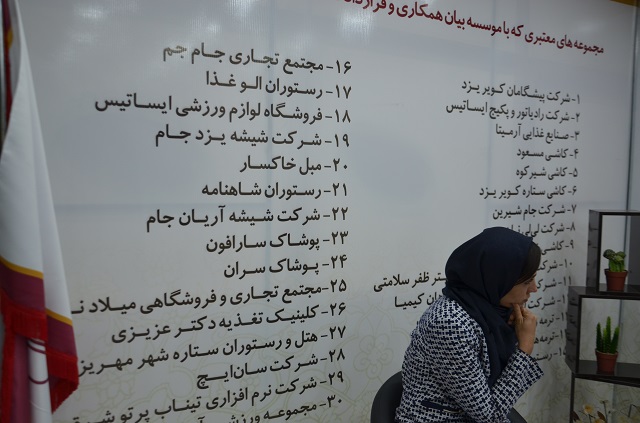 مجموعه های معتبری که با موسسه بیان همکاری و
۱- شرکت پیشگامان کویر یزد
۲- شرکت رادیاتور و پکیج ایساتیس
۳- صنایع غذایی آرمیتا
۴- کاشی مسعود
۵- کاشی شیرکوه
۶- کاشی ستاره کویر یزد
۷- شرکت جام شیرین
۸- شرکت لی لی
۹- کاشی
۱۰- شرکت
۱۱- شرکت
ظفر سلامتی
کیمیا
۱۶- مجتمع تجاری جام جم
۱۷- رستوران الو غذا
۱۸- فروشگاه لوازم ورزشی ایساتیس
۱۹- شرکت شیشه یزد جام
۲۰- مبل خاکسار
۲۱- رستوران شاهنامه
۲۲- شرکت شیشه آریان جام
۲۳- پوشاک سارافون
۲۴- پوشاک سران
۲۵- مجتمع تجاری و فروشگاهی میلاد
۲۶- کلینیک تغذیه دکتر عزیزی
۲۷- هتل و رستوران ستاره شهر مهریز
۲۸- شرکت سان‌ایچ
۲۹- شرکت نرم افزاری تیناب پرتو
۳۰- مجموعه